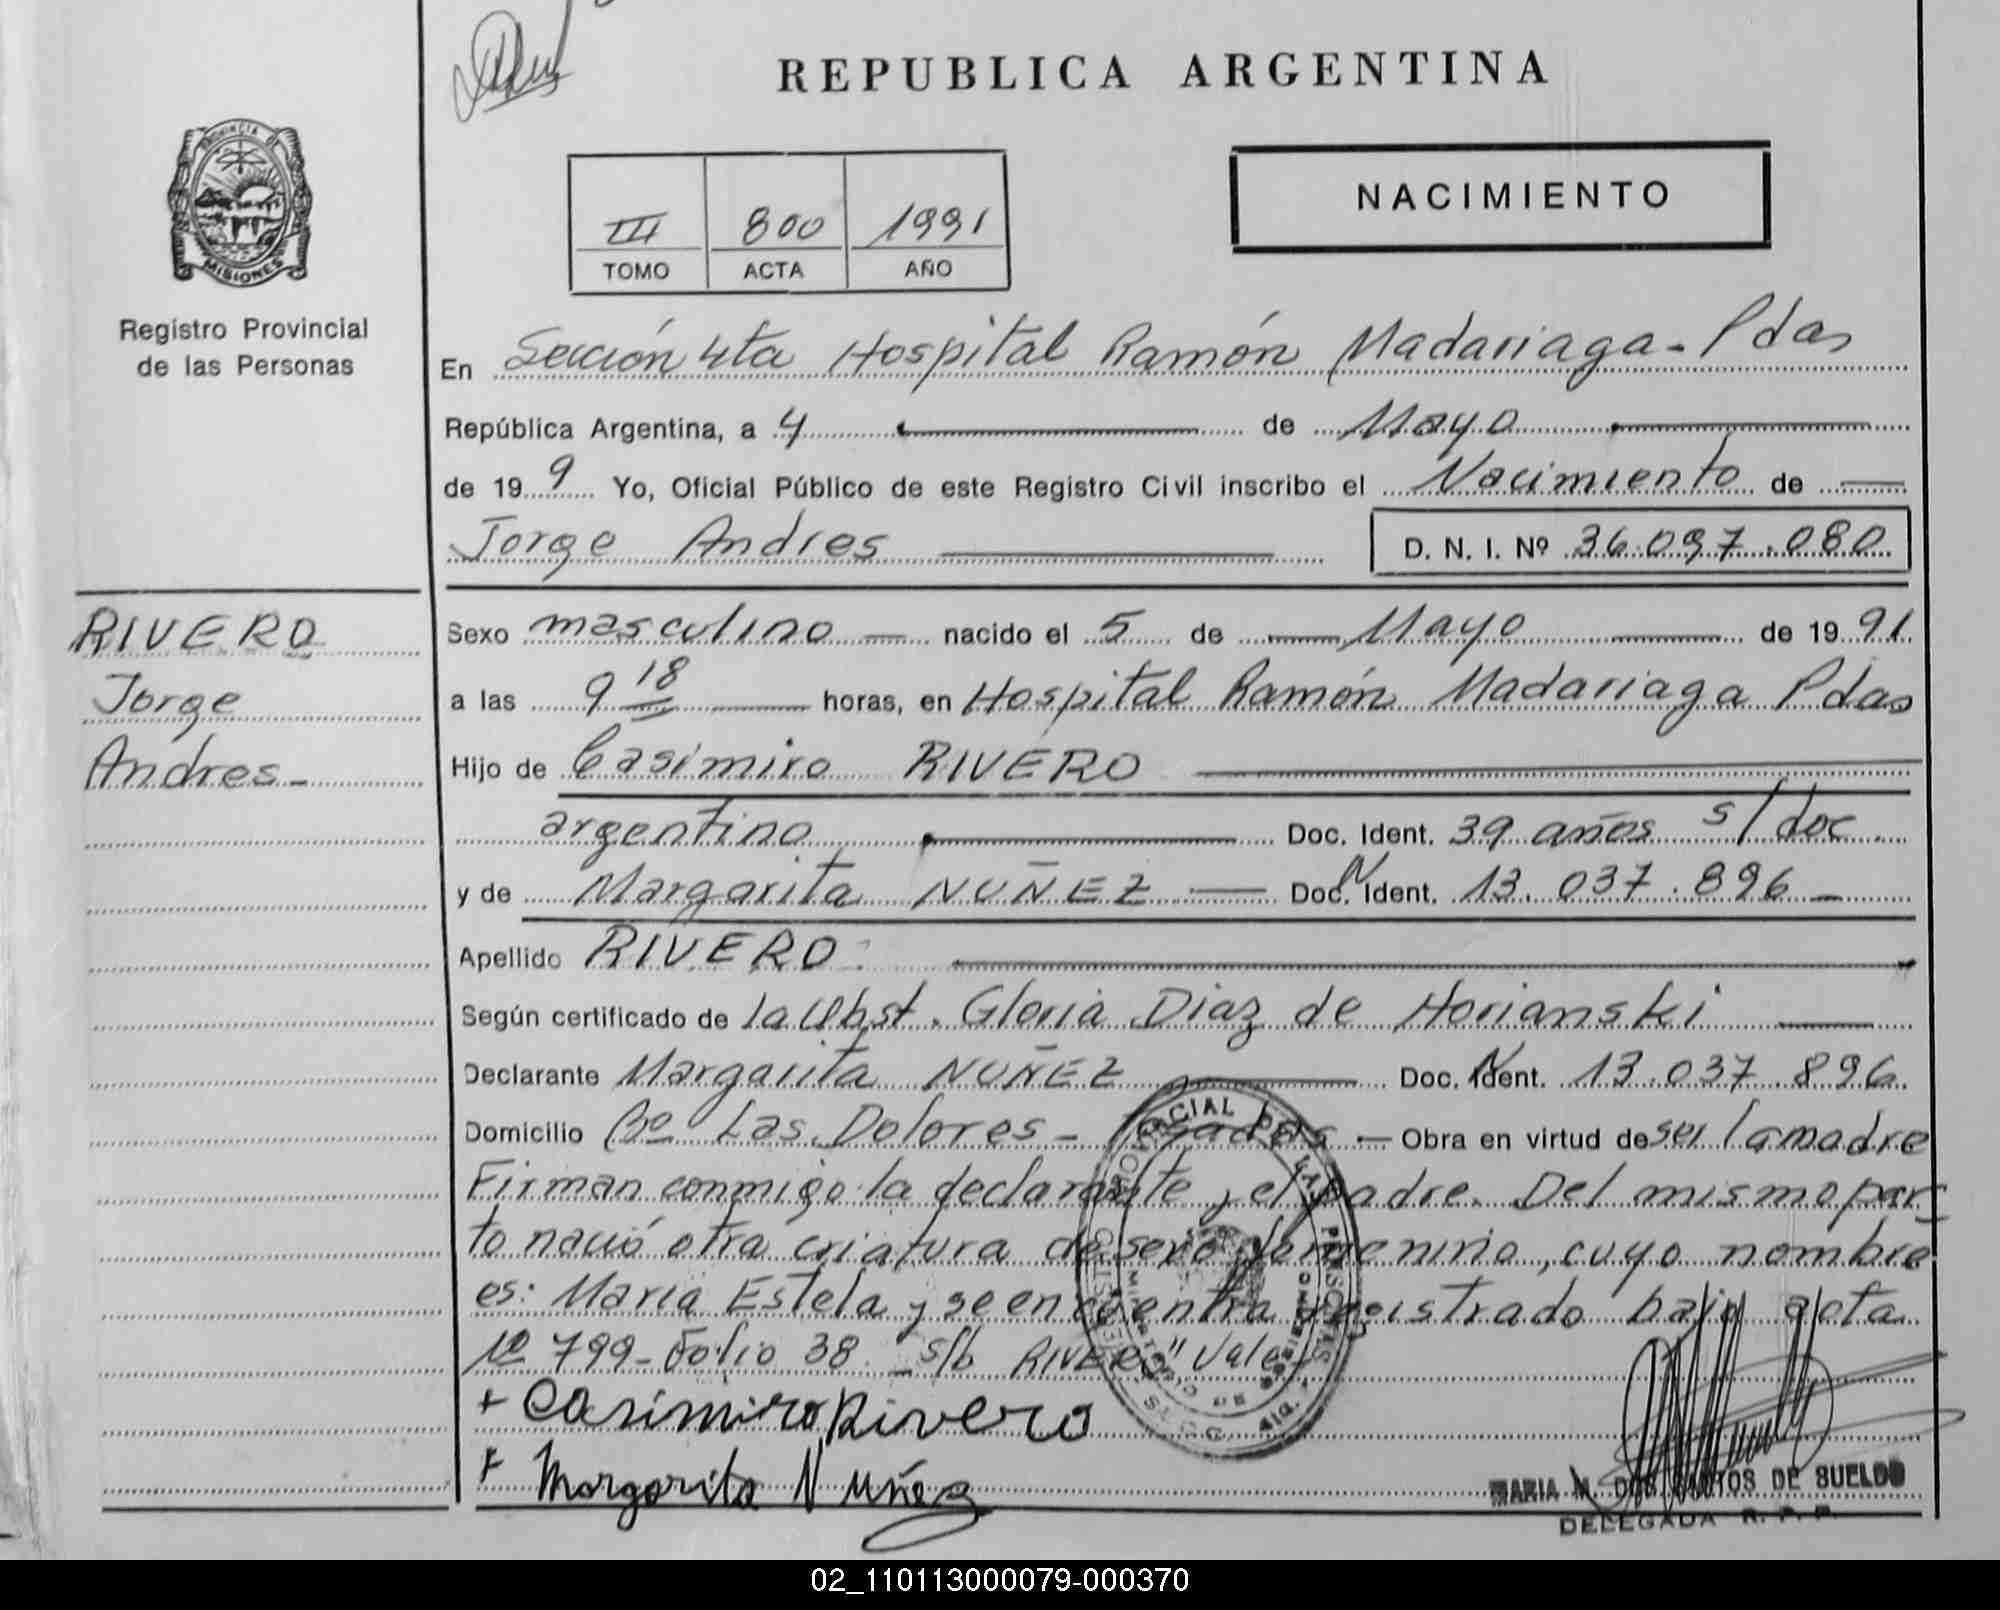 REPUBLICA ARGENTINA
PROVINCIA DE
MISIONES
III 800 1991
TOMO ACTA AÑO
NACIMIENTO
Registro Provincial
de las Personas
En Sección 4ta Hospital Ramón Madariaga - Pdas
República Argentina, a 4 de Mayo
de 19 9 Yo, Oficial Público de este Registro Civil inscribo el Nacimiento de
Jorge Andres D. N. I. Nº 36.097.080
RIVERO
Jorge
Andres -
Sexo masculino nacido el 5 de Mayo de 19 91
a las 9 18 horas, en Hospital Ramón Madariaga Pdas
Hijo de Casimiro RIVERO
argentino Doc. Ident. 39 años s/doc
y de Margarita NUÑEZ Doc. N Ident. 13.037.896
Apellido RIVERO
Según certificado de la Obst. Gloria Diaz de Horianski
Declarante Margarita NUÑEZ Doc. N Ident. 13.037.896
Domicilio Bº Las Dolores - Posadas - Obra en virtud de ser la madre
Firman conmigo la declarante y el padre. Del mismo par-
to nació otra criatura de sexo femenino, cuyo nombre
es: María Estela y se encuentra registrado bajo acta
Nº 799 - Folio 38 - s/b RIVERO" Vale-
+ Casimiro Rivero
+ Margarita Nuñez
MARIA M. DOS SANTOS DE SUELDO
DELEGADA R. P. P.
02_110113000079-000370